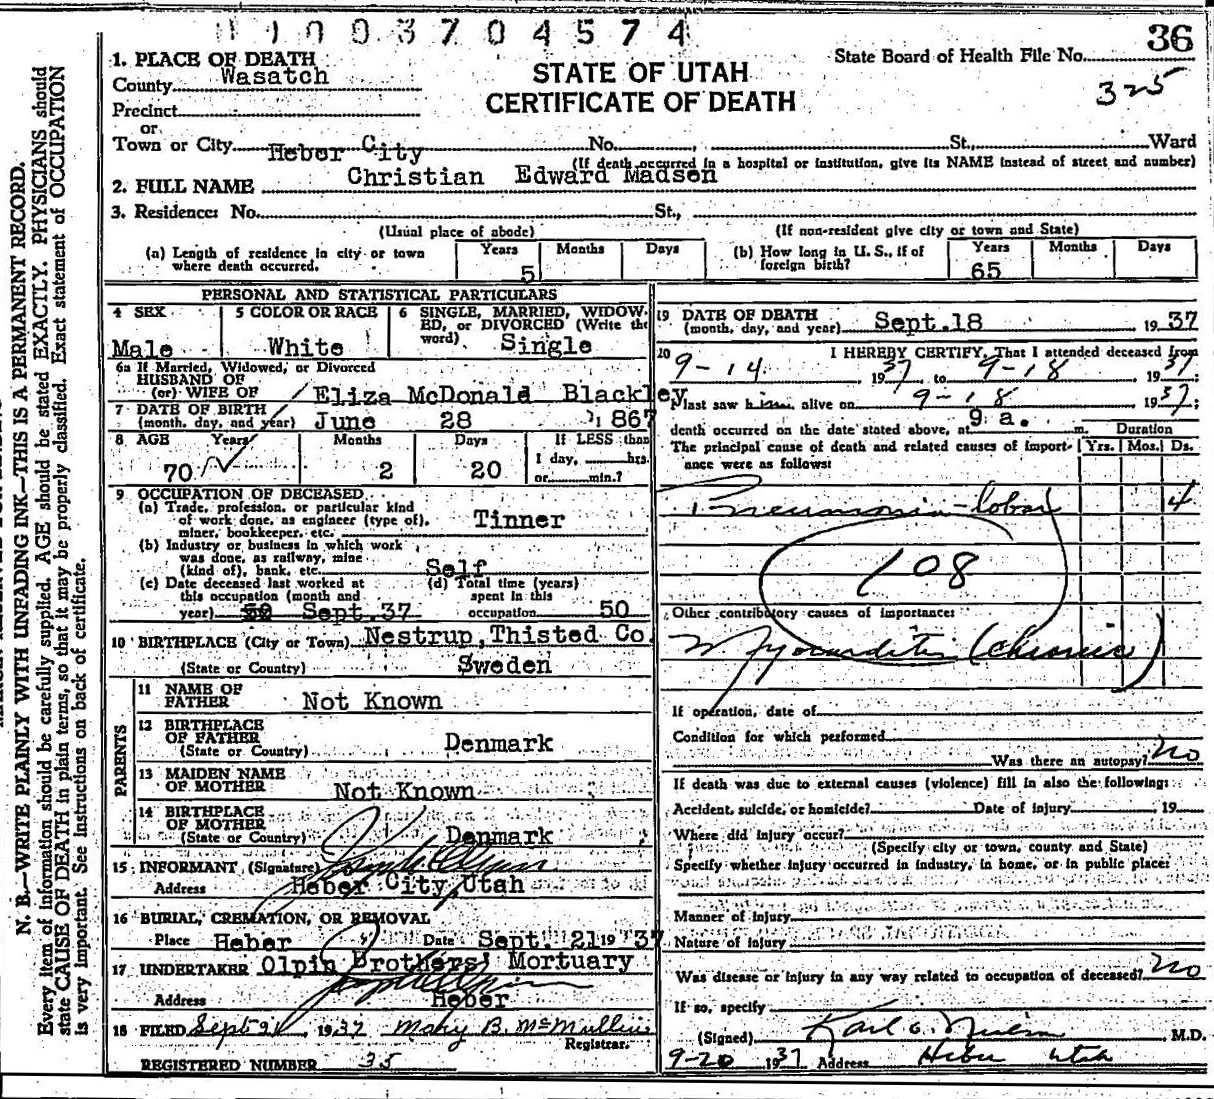 1003704574
36
State Board of Health File No.
325
STATE OF UTAH
CERTIFICATE OF DEATH
1. PLACE OF DEATH
County Wasatch
Precinct
or
Town or City Heber City No. , St., Ward
(If death occurred in a hospital or institution, give its NAME instead of street and number)
2. FULL NAME Christian Edward Madsen
3. Residence: No. St.,
(Usual place of abode) (If non-resident give city or town and State)
(a) Length of residence in city or town where death occurred. Years 5 Months Days
(b) How long in U. S., if of foreign birth? Years 65 Months Days
PERSONAL AND STATISTICAL PARTICULARS
4 SEX Male
5 COLOR OR RACE White
6 SINGLE, MARRIED, WIDOWED, or DIVORCED (Write the word) Single
6a If Married, Widowed, or Divorced
HUSBAND OF
(or) WIFE OF Eliza McDonald Blackley
7 DATE OF BIRTH
(month, day, and year) June 28 1867
8 AGE Years 70 Months 2 Days 20 If LESS than
1 day, hrs.
or min.?
9 OCCUPATION OF DECEASED
(a) Trade, profession, or particular kind
of work done, as engineer (type of),
miner, bookkeeper, etc. Tinner
(b) Industry or business in which work
was done, as railway, mine
(kind of), bank, etc. Self
(c) Date deceased last worked at
this occupation (month and
year) Sept.37
(d) Total time (years)
spent in this
occupation 50
10 BIRTHPLACE (City or Town) Nestrup,Thisted Co.
(State or Country) Sweden
PARENTS
11 NAME OF
FATHER Not Known
12 BIRTHPLACE
OF FATHER
(State or Country) Denmark
13 MAIDEN NAME
OF MOTHER Not Known
14 BIRTHPLACE
OF MOTHER
(State or Country) Denmark
15 INFORMANT (Signature)
Address Heber City,Utah
16 BURIAL, CREMATION, OR REMOVAL
Place Heber Date Sept. 21 19 37
17 UNDERTAKER Olpin Brothers' Mortuary
Address Heber
18 FILED Sept 21 1937 Mary B. McMullin
Registrar.
REGISTERED NUMBER 35
19 DATE OF DEATH
(month, day, and year) Sept.18 19 37
20 I HEREBY CERTIFY, That I attended deceased from
9-14 1937 to 9-18 1937;
I last saw him alive on 9-18 1937;
death occurred on the date stated above, at 9 a. m.
Duration
The principal cause of death and related causes of importance were as follows: Yrs. Mos. Ds.
Pneumonia-lobar 4
108
Other contributory causes of importance:
Myocarditis (Chronic)
If operation, date of
Condition for which performed
Was there an autopsy? No
If death was due to external causes (violence) fill in also the following:
Accident, suicide, or homicide? Date of injury 19
Where did injury occur?
(Specify city or town, county and State)
Specify whether injury occurred in industry, in home, or in public place:
Manner of injury
Nature of injury
Was disease or injury in any way related to occupation of deceased? No
If so, specify
(Signed) Karl O. Nielson M.D.
9-20 1937 Address Heber Utah
N. B.—WRITE PLAINLY WITH UNFADING INK—THIS IS A PERMANENT RECORD.
Every item of information should be carefully supplied. AGE should be stated EXACTLY. PHYSICIANS should
state CAUSE OF DEATH in plain terms, so that it may be properly classified. Exact statement of OCCUPATION
is very important. See instructions on back of certificate.